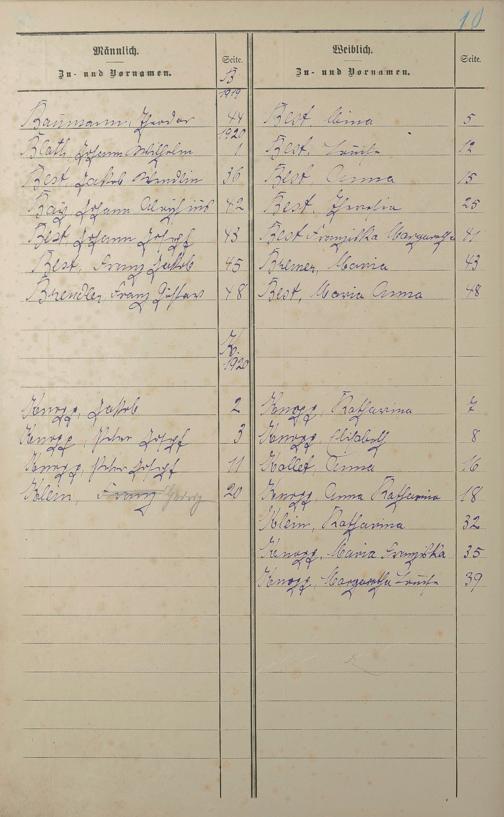 10
Männlich.
Zu- und Vornamen.
Seite.
B
1919
Baumann, Theodor 44
1920
Blath, Johann Wilhelm 1
Best, Jakob Wendlin 36
Johann 42
Best Johann Josef 43
Best, Franz Jakob 45
Brendler, Franz Gustav 48
K.
1920
Knopp, Jakob 2
Knopp, Peter Josef 3
Knopp, Peter Josef 11
Klein, Franz Georg 20
Weiblich.
Zu- und Vornamen.
Seite.
Best, 5
Best, Luise 12
Best Anna 15
Best, 25
Best Franziska Margaretha 41
Bremer, Maria 43
Best, Maria Anna 48
Knopp, Katharina 7
Knopp, Elisabeth 8
Kollet, Anna 16
Knopp, Anna Katharina 18
Klein, Katharina 32
Knopp, Maria Franziska 35
Knopp, Margaretha Luise 39